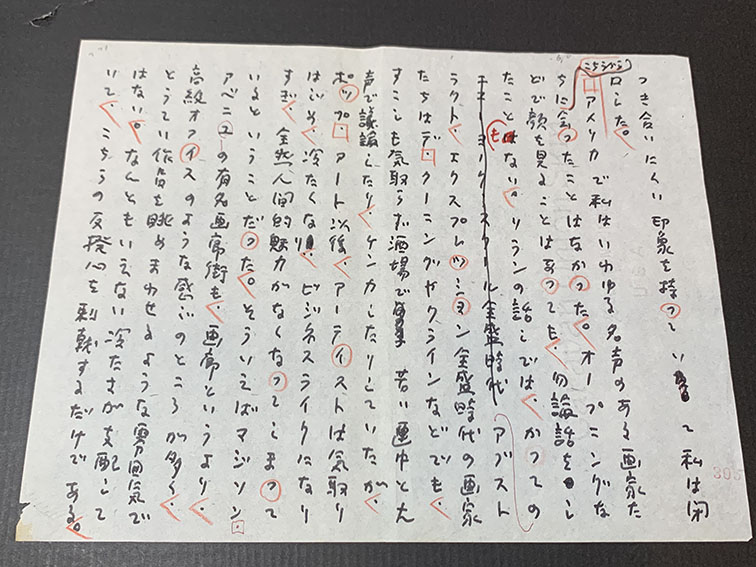 つき合いにくい印象を持っていて私は閉
口した。
こちらから
アメリカで私はいわゆる名声のある画家た
ちに会ったことはなかった。オープニングな
どで顔を見ることはあっても、勿論話をし
たこともない。リランの話しでは、かつての
ニューヨークスクール全盛時代 アブスト
ラクト、エクスプレッション全盛時代の画家
たちはデ・クーニングやクラインなどでも、
すこしも気取らず酒場で 若い連中と大
声で議論したり、ケンカしたりしていたが、
ポップ・アート以後、アーティストは気取り
はじめ、冷たくなり、ビジネスライクになり
すぎ、全然人間的魅力がなくなってしまって
いるということだった。そういえばマジソン・
アベニユの有名画廊街も、画廊というより、
高級オフイスのような感じのところが多く、
とうてい作品を眺めまわせるような雰囲気で
はない。なんともいえない冷たさが支配して
いて、こちらの反撥心を刺戟するだけである。
305